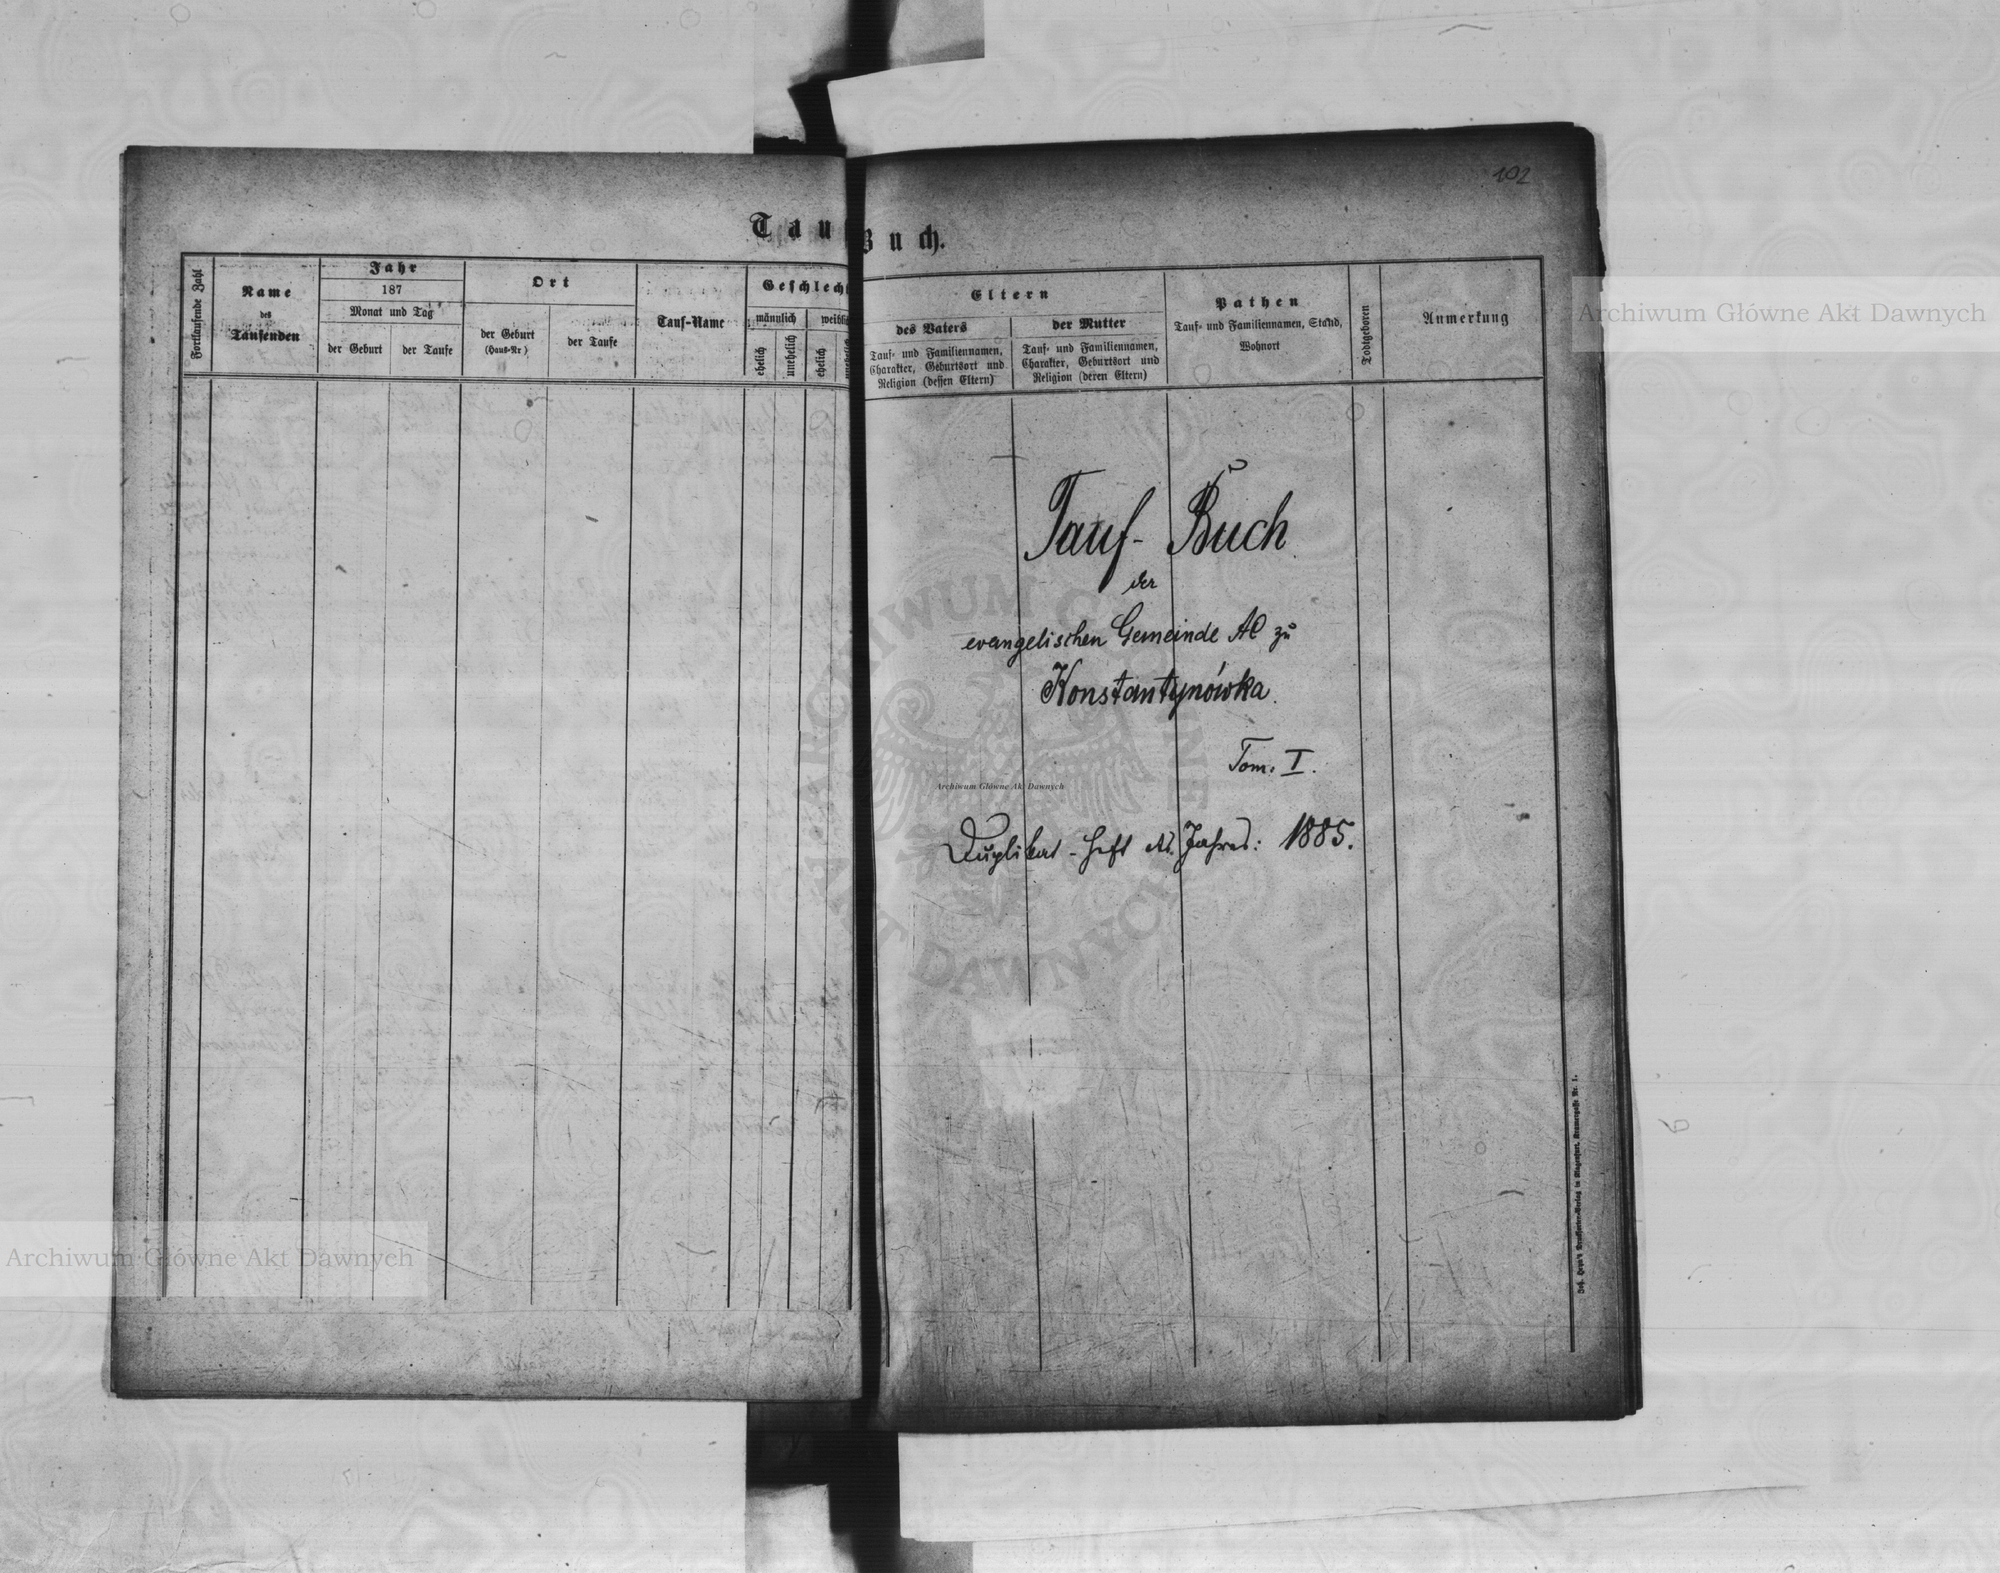 102
Tauf-Buch.
Fortlaufende Zahl
Name
des
Taufenden
Jahr
187
Monat und Tag
der Geburt
der Taufe
Ort
der Geburt
(Haus-Nr)
der Taufe
Tauf-Name
Geschlecht
männlich
weiblich
ehelich
unehelich
ehelich
unehelich
Eltern
des Vaters
Tauf- und Familiennamen,
Charakter, Geburtsort und
Religion (dessen Eltern)
der Mutter
Tauf- und Familiennamen,
Charakter, Geburtsort und
Religion (deren Eltern)
Pathen
Tauf- und Familiennamen, Stand,
Wohnort
Todtgeboren
Anmerkung
Tauf-Buch
der
evangelischen Gemeinde AC zu
Konstantynówka.
Tom. I.
Duplikat-Heft des Jahres: 1885.
Archiwum Główne Akt Dawnych
Archiwum Główne Akt Dawnych
Archiwum Główne Akt Dawnych
ARCHIWUM GŁÓWNE AKT DAWNYCH